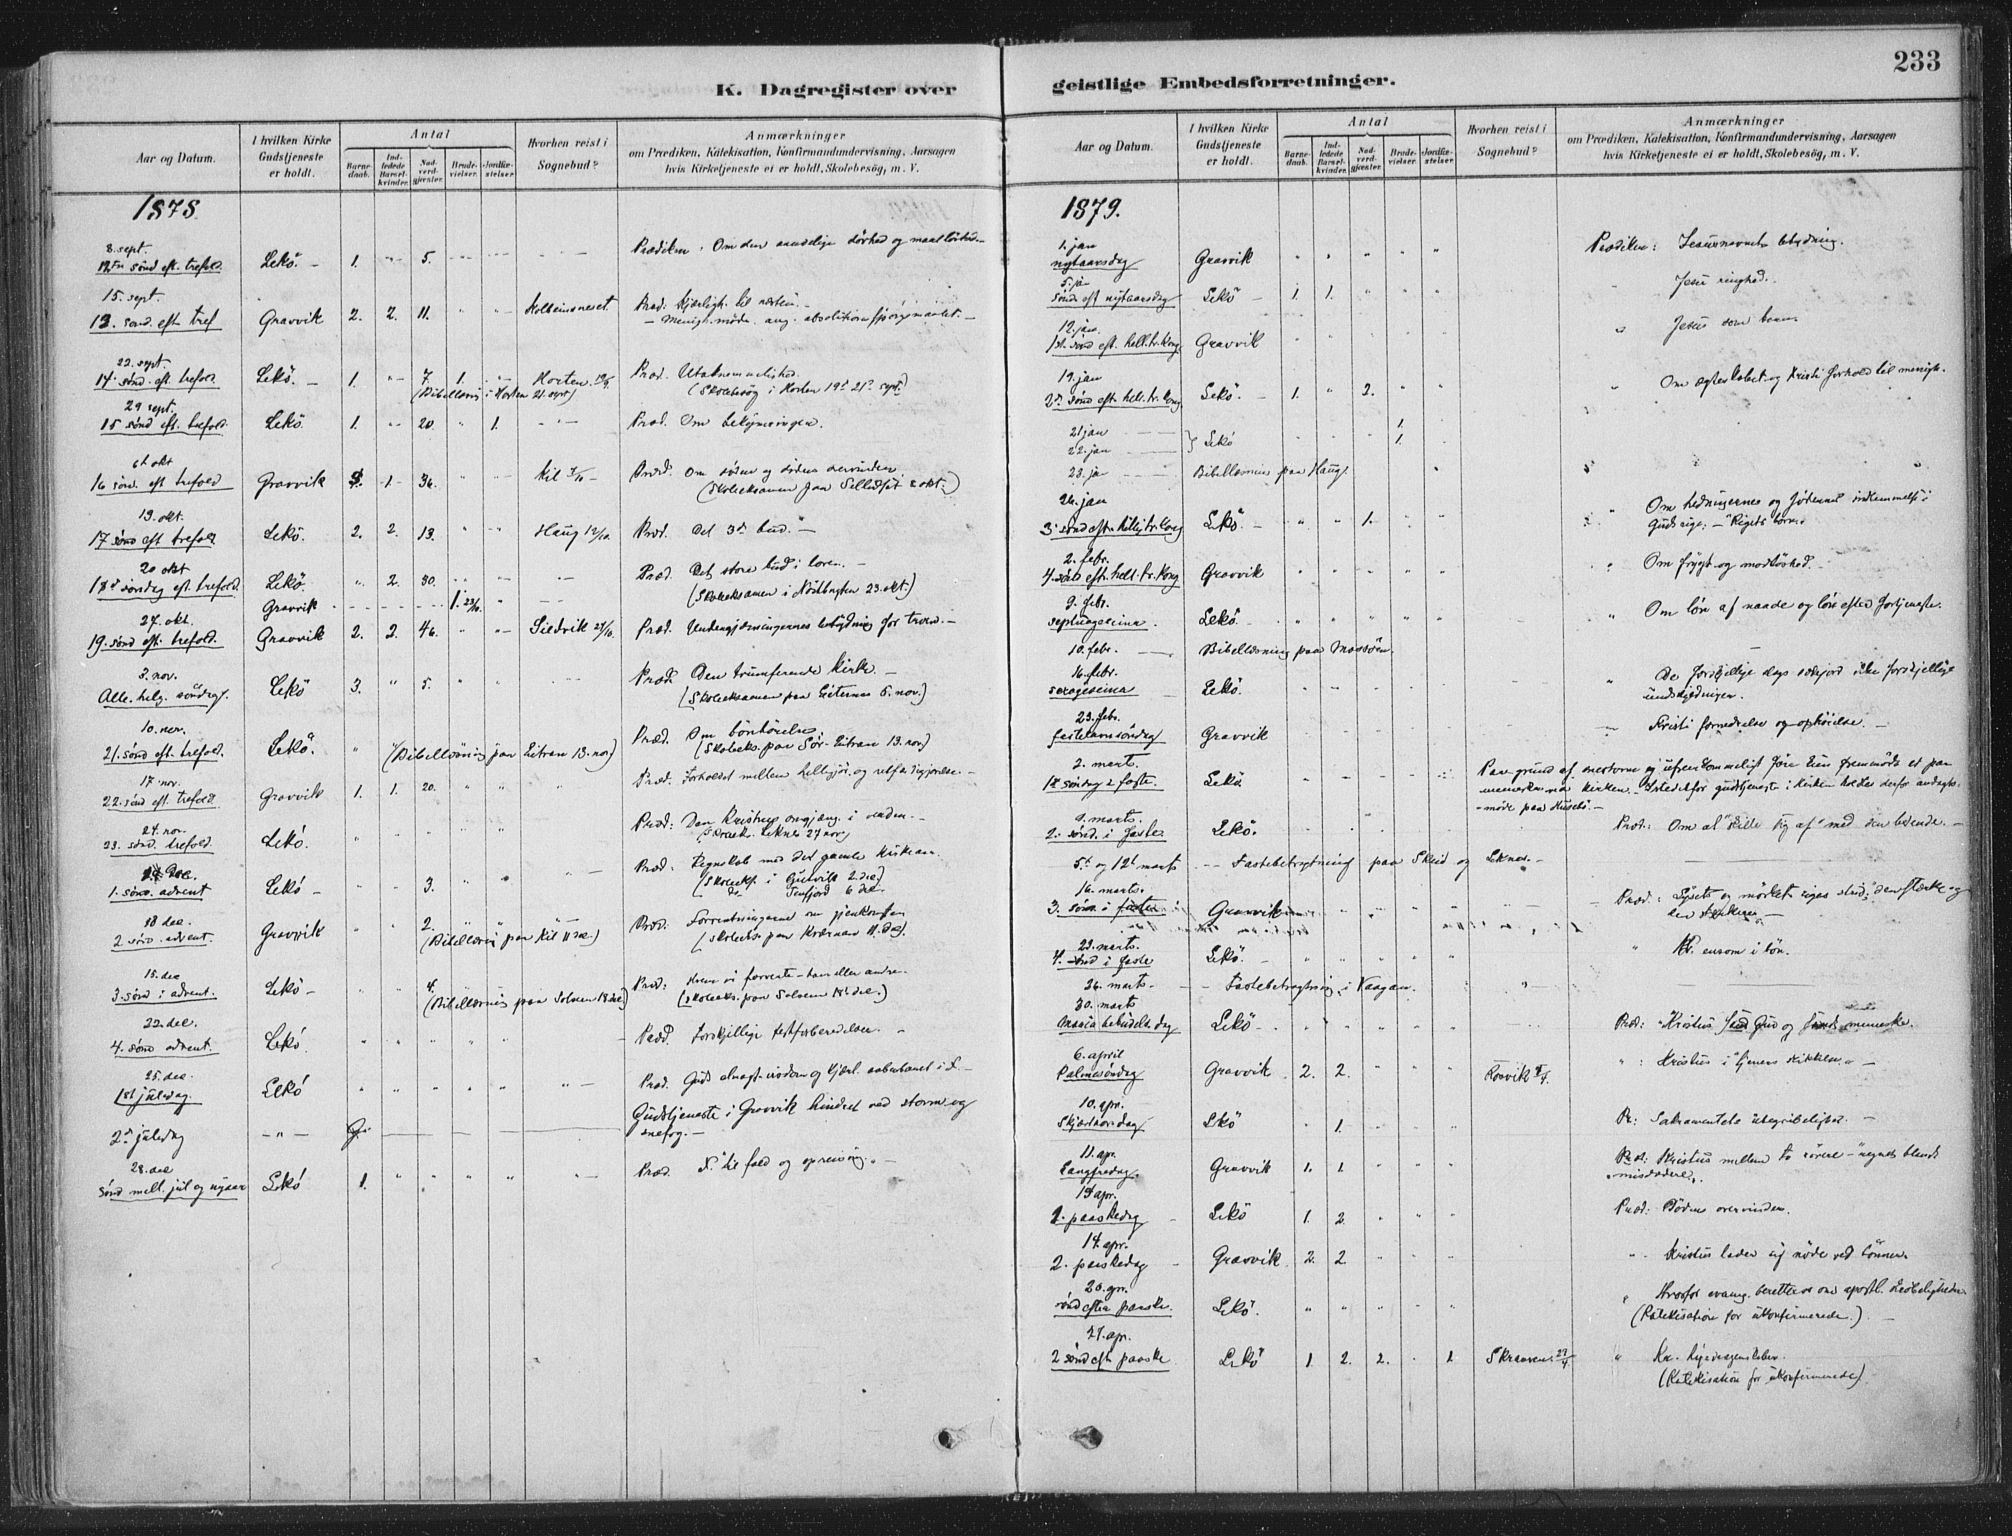 233
K. Dagregister over
Aar og Datum. I hvilken Kirke Gudstjeneste er holdt. Antal Barne-daab. Ind-ledede Barsel-kvinder. Nad-verd-gjæster. Brude-vielser. Jordfæ-stelser Hvorhen reist i Sognebud? Anmærkninger om Prædiken, Katekisation, Konfirmandundervisning, Aarsagen hvis Kirketjeneste ei er holdt, Skolebesøg, m. V.
1878.
8. sept.
12te sønd eft. trefold. Lekö. - 1. " 5. Prædiken: Om den aandelige dövhed og maallöshed.-
15. sept.
13. sønd. eft tref Gravvik 2. 2. 11. Præd: Kjærligh. til næsten.-
- Menigh.möde ang. absolutionsspörgsmaalet.-
22. sept.
14. sønd. eft. trefold Lekö. - 1. " 7. 1. Horten Præd. Utaknemmelighed.
(Bibellæsn i Horten 21. sept) (Skolebesög i Horten 19d 21de sept.)
29 sept.
15 sønd eft. trefold. Lekö. 1. 20. " 1. Præd. Om bekymringen.
6t okt
16 sønd. eft trefold Gravvik 1 36. Kil Præd: Om döden og dödens overvinder.
8 okt.)
13. okt.
17 sønd eft trefold Lekö. 2. 2. 13. Haug 12/10. Præd. Det 3de bud.-
20 okt
18de søndag eft. trefold. Lekö. " 2. 30. Præd. Det store bud i loven.-
Gravvik 1. (Skoleexamen i 23. okt.)
27. okt.
19. sønd eft. trefold. Gravvik 2. 2. 46. Præd. Undergjerningernes betydning for troen.-
3. nov.
Alle. helg. söndag. Lekö 3. 5. Præd. Den triumferende kirke.-
(Skoleeksamen paa 6. nov.)
10. nov.
21. sønd eft. trefold. Lekö. (Bibellæsning paa Eitran 13. nov) Præd. Om bönhörelse
(Skoleks. paa Sör-Eitran 13. nov)
17 nov.
22. sønd eft. trefold Gravvik 1. 1. 20. Præd. Forholdet mellem helliggjör. og retfærdiggjörelse.-
24. nov.
23. sønd. trefold. Lekö. Præd: Den Kristnes omgjæng. i verden.-
Leknes 27 nov)
1. sønd. advent Lekö - 3. Præd: Regnskab med det gamle kirkeaar.
(Skoleeks. i Gutvik 2. dec.)
6 dec
2. sønd. advent. Gravvik 2. Præd.
(Bibellæsn paa Kil 11 dec.) (Skoleeks. paa 11. dec).
15. dec
3. sønd i advent. Lekö - 4. Præd: Hvem vi forvente - ham eller andre.
(Bibellæsning paa Solsem 18 dec) (Skoleeks. paa Solsem 18d dec.)
22. dec.
4. sønd advent. Lekö. Præd. Forskjellige festforberedelser.
25. dec.
1st juledag. Lekö Præd. Guds almagt visdom og kjærl. aabenbaret i X-
2d juledag - " - Gudstjeneste i Gravvik hindret ved storm og
snefog.-
28. dec
sønd mell. jul og nyaar Lekö 1. Præd. X. til fald og opreisning.-
geistlige Embedsforretninger.
Aar og Datum. I hvilken Kirke Gudstjeneste er holdt. Antal Barne-daab. Ind-ledede Barsel-kvinder. Nad-verd-gjæster. Brude-vielser. Jordfæ-stelser Hvorhen reist i Sognebud? Anmærkninger om Prædiken, Katekisation, Konfirmandundervisning, Aarsagen hvis Kirketjeneste ei er holdt, Skolebesøg, m. V.
1879.
1. jan
nytaarsdag Gravvik Prædiken: Jesusnavnets betydning.
5. jan
sønd. eft nytaarsdag Lekö - 1. 1. Jesu ringhed.
12. jan.
1st. sønd eft. hell.tr.kong. Gravvik Jesus som barn.
19. jan
2d sønd eft. hell.tr.kong Lekö. - 1. " 2. Om ægteskabet og Kristi forhold til menigh.
21 jan 1.
22. jan } Lekö 1.
23. jan Bibellæsning paa Haug.
26. jan
3. sønd eft. hellig tr. kong Lekö. - 1. Om hedningernes og jødernes indlemmelse i
Guds rige; - "Rigets börn"
2. febr.
4. sönd eft. hell. tr. kong Gravvik Om frygt og modlöshed.-
9. febr.
septuagesima. Lekö. Om lön af naade og lön efter fortjeneste.
10. febr. Bibellæsning paa
16. febr.
sexagesima Lekö. De forskjellige slags sædejord ikke forskjellige
undskyldninger.
23. febr.
fastelavnsöndag Gravvik Kristi fornedrelse og ophöielse.-
2. marts.
1st söndag i faste. Lekö. Paa grund af snestorm og ufremkommeligt före kun fremmödt et par
mennesker ved kirken. Istedetfor gudstjeneste i kirken holdes derfor andagts-
möde paa Huseby.-
9. marts.
2. sønd. i faste Lekö. Præd: Om at skille sig af med den bedende.-
5t og 12t marts - - Fastebetragtning paa Skeid og Leknes.-
16. marts.
3. sønd i faste Gravvik Præd: Lysets og mörkets riges strid; den stærke og
den stærkere.-
23. marts.
4. sönd i faste Lekö. " Kr. ensom i bön.
26. marts. - - Fastebetragtning i Vaagan.
30. marts
Maria bebudels. dag Lekö Præd: Kristus sand Gud og sandt menneske.
6. april
Palmesöndag Gravvik 2. 2. Rörvik " : Kristus i tjeners skikkelse.-
10. apr.
Skjærtorsdag Lekö 1. Pr: Sakramentets ubegribelighed.-
11. apr.
Langfredag. Gravvik 1. 1. Præd: Kristus mellem to rövere - "regnet blandt
misdædere".
13d apr.
1. paaskedag Lekö 1. 2. Præd: Dödens overvinder.
14. apr.
2. paaskedag Gravvik 2. 2. Kristus lader sig nöde ved bönner.
20. apr.
sønd efter paaske. Lekö. Hvorfor evang. beretter os om apostl. skröbeligheder.
(Katekisation for ukonfirmerede.) -
27. apr.
2 sønd eft paaske Lekö 1. 2. 2. 1 Skraaven 27/4. " Kr. hyrde
(Katekisation for ukonfirmerede)